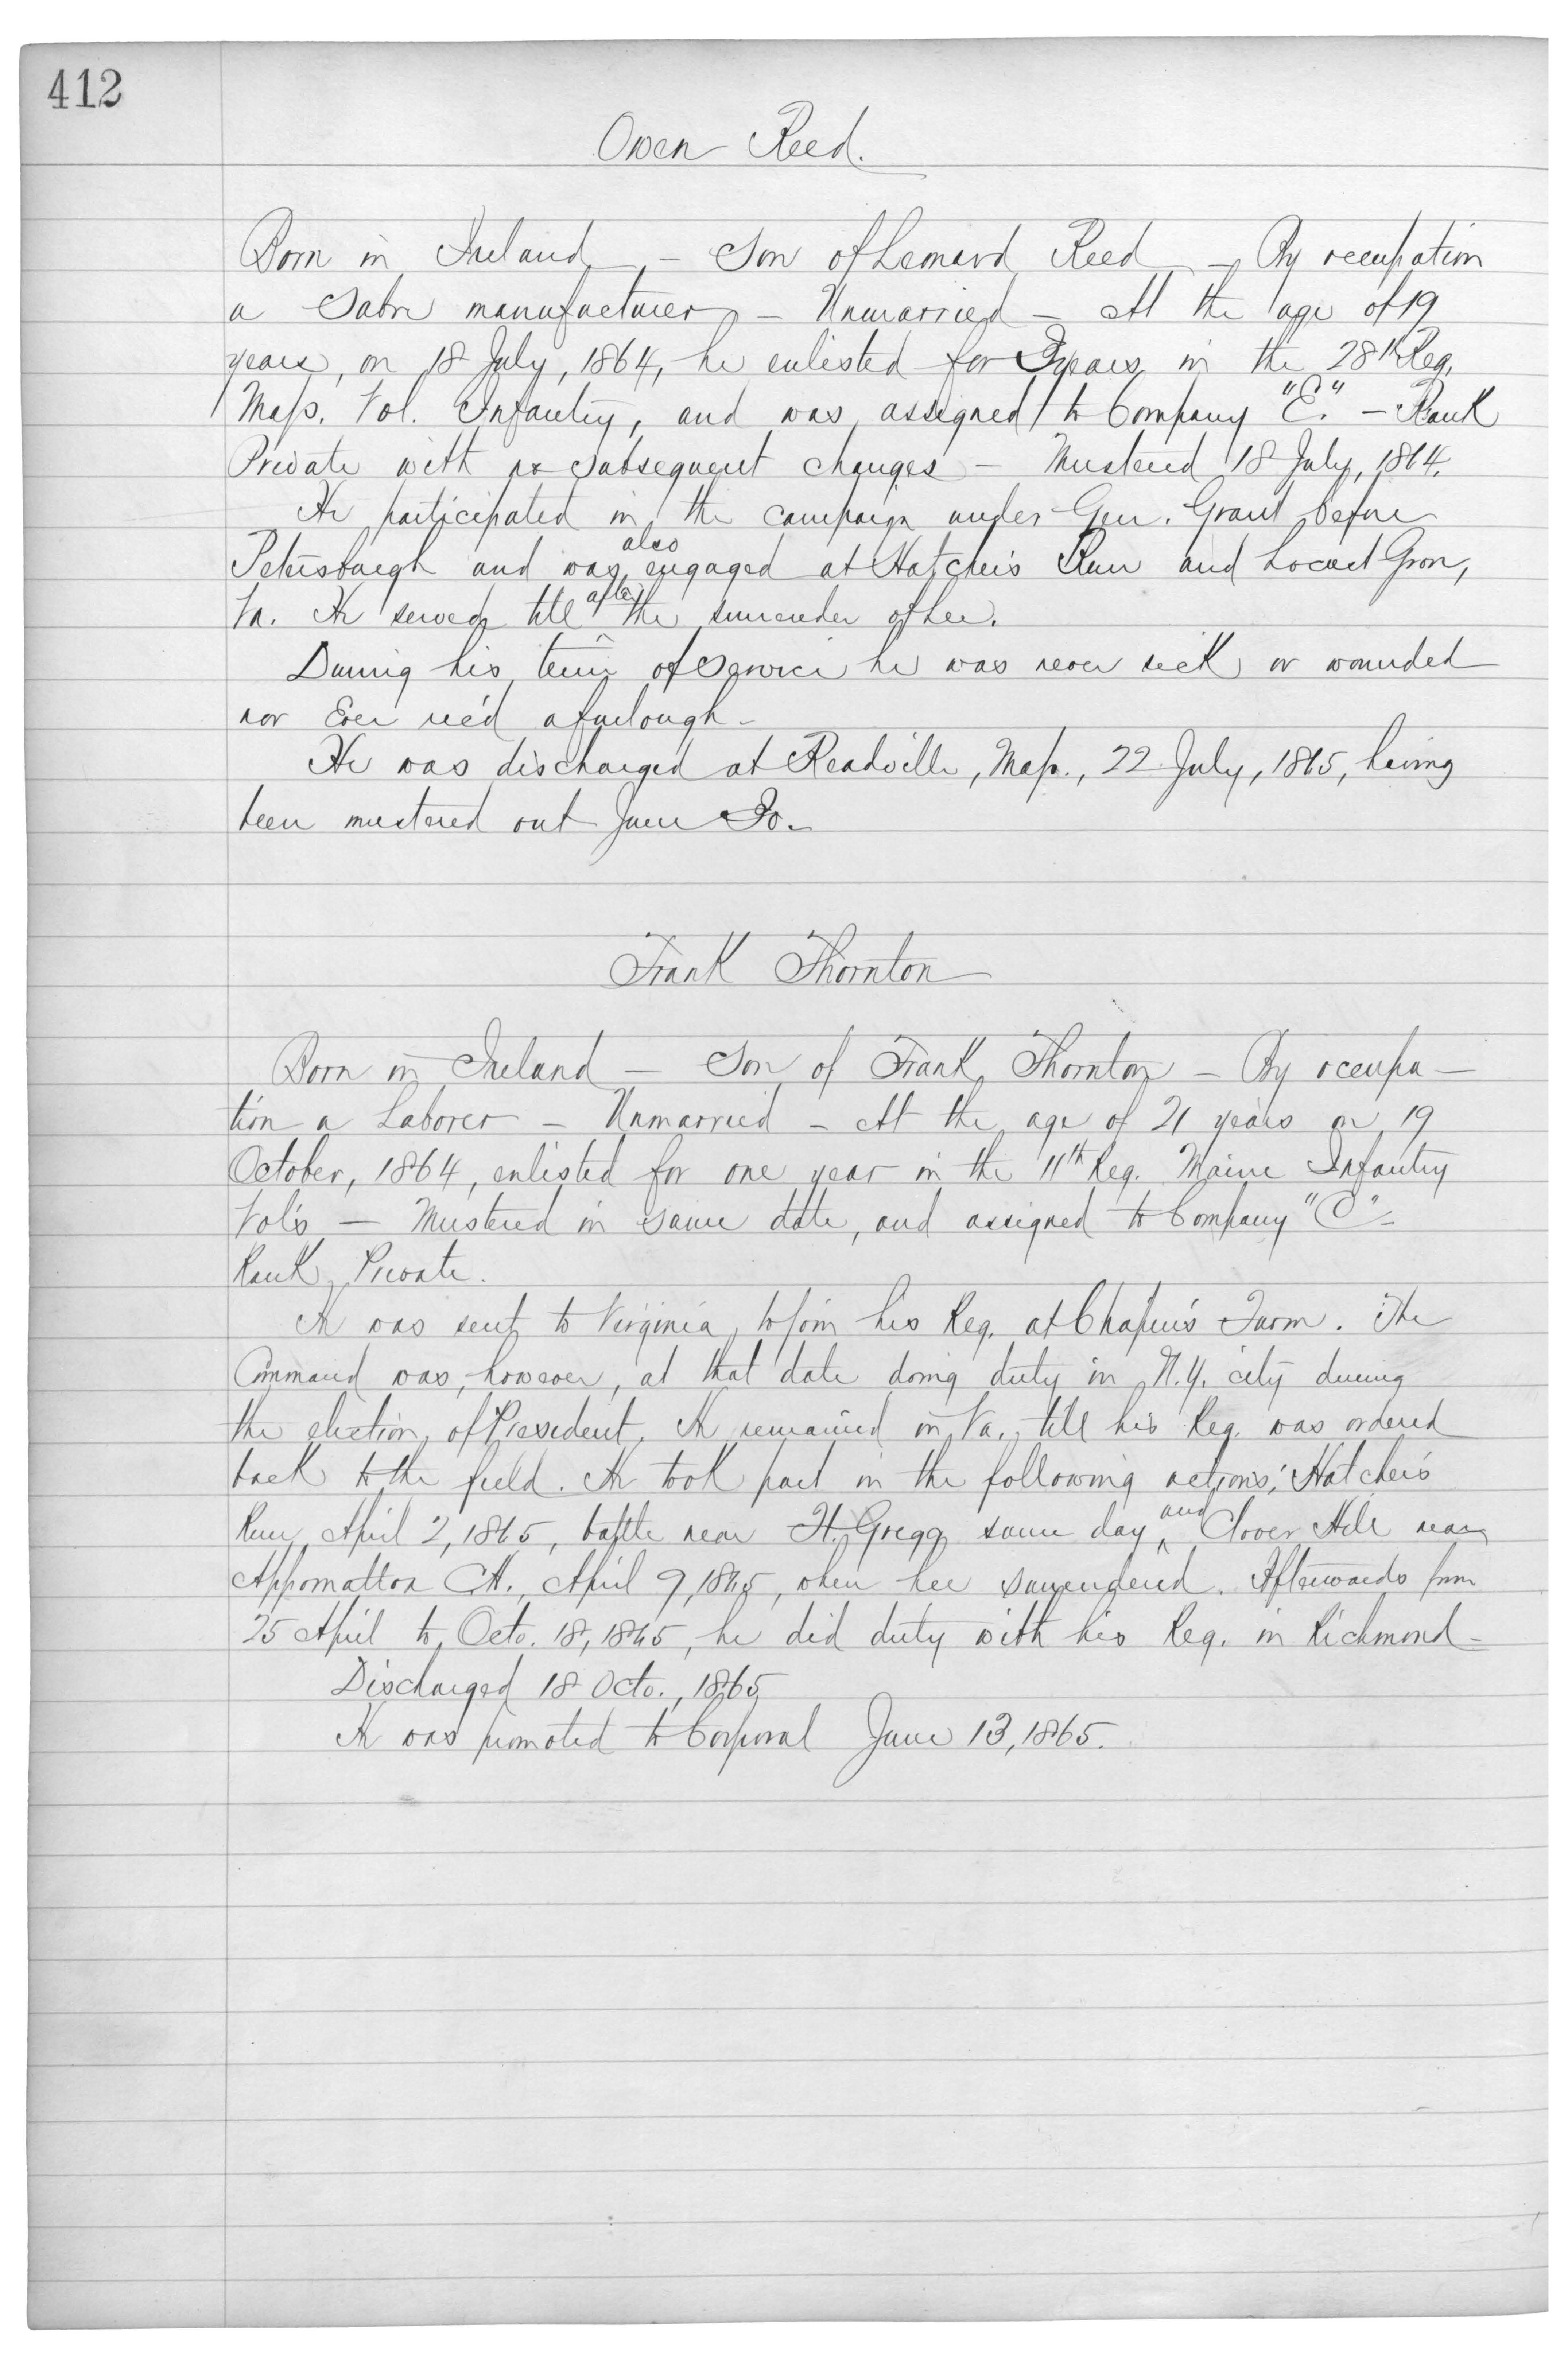 412
Owen Reed.
Born in Ireland, - Son of Leonard Reed - By occupation
a Sabre manufacturer - Unmarried - At the age of 19
years, on 18 July, 1864, he enlisted for 3 years in the 28th Reg.
Mass. Vol. Infantry, and was assigned to Company "E." - Rank
Private with no subsequent changes - Mustered 18 July, 1864.
He participated in the campaign under Gen. Grant before
Petersburgh and was also engaged at Hatcher's Run and Locust Grove,
Va. He served till after the surrender of Lee.
During his term of Service he was never sick or wounded
nor Ever rec'd a furlough -
He was discharged at Readville, Mass., 22 July, 1865, having
been mustered out June 30.
Frank Thornton
Born in Ireland - Son of Frank Thornton - By occupa-
tion a Laborer - Unmarried - At the age of 21 years on 19
October, 1864, enlisted for one year in the 11th Reg. Maine Infantry
Vol's - Mustered in same date, and assigned to Company "C" -
Rank Private.
He was sent to Virginia to join his Reg. at Chapin's Farm. The
Command was, however, at that date doing duty in N.Y. city during
the election of President. He remained in Va. till his Reg. was ordered
back to the field. He took part in the following actions; Hatcher's
Run, April 2, 1865, battle near Ft. Gregg same day, and Clover Hill near
Appomattox C.H., April 9, 1865, when Lee surrendered. Afterwards from
25 April to Octo. 18, 1865, he did duty with his Reg. in Richmond -
Discharged 18 Octo., 1865
He was promoted to Corporal June 13, 1865.